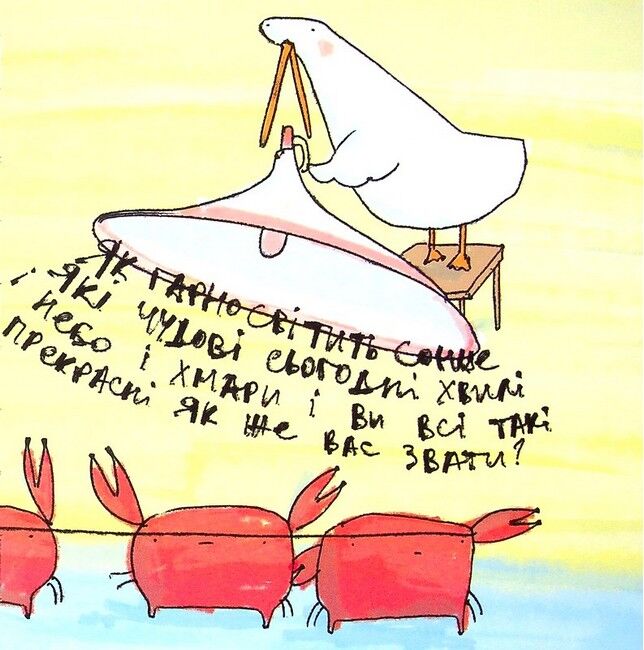 ЯК ГАРНО СВІТИТЬ СОНЦЕ
ЯКІ ЧУДОВІ СЬОГОДНІ ХВИЛІ
І НЕБО І ХМАРИ І ВИ ВСІ ТАКІ
ПРЕКРАСНІ ЯК ЖЕ ВАС ЗВАТИ?